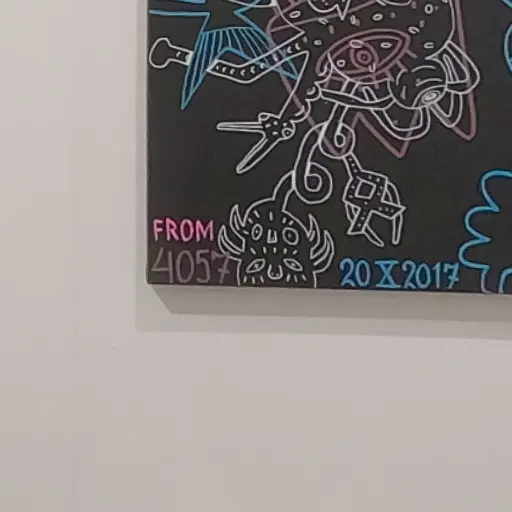 FROM
4057
20 X 2017